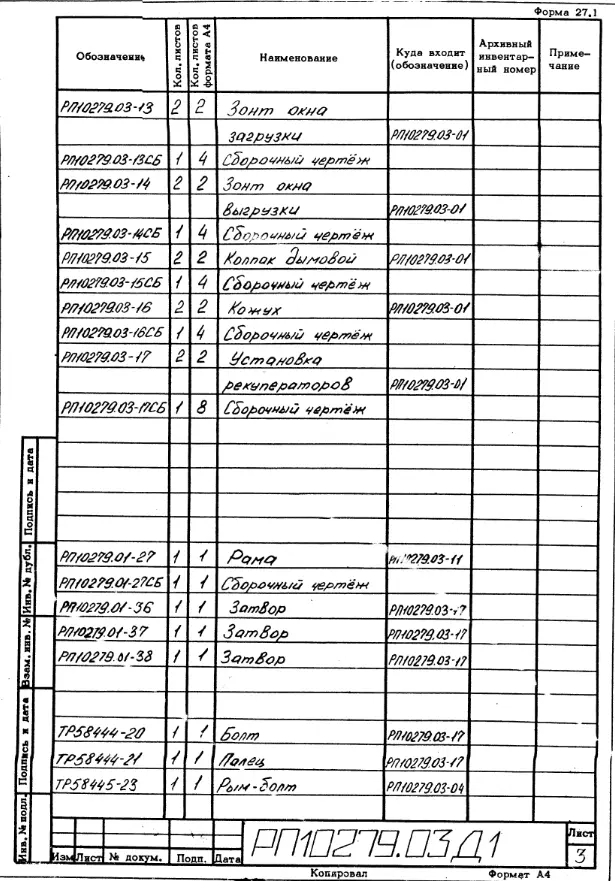 Форма 27.1
Обозначение | Кол. листов | Кол. листов формата А4 | Наименование | Куда входит (обозначение) | Архивный инвентар- ный номер | Приме- чание
РП10279.03-13 2 2 Зонт окна
загрузки РП10279.03-01
РП10279.03-13СБ 1 4 Сборочный чертёж
РП10279.03-14 2 2 Зонт окна
выгрузки РП10279.03-01
РП10279.03-14СБ 1 4 Сборочный чертёж
РП10279.03-15 2 2 Колпак дымовой РП10279.03-01
РП10279.03-15СБ 1 4 Сборочный чертёж
РП10279.03-16 2 2 Кожух РП10279.03-01
РП10279.03-16СБ 1 4 Сборочный чертёж
РП10279.03-17 2 2 Установка
рекуператоров РП10279.03-01
РП10279.03-17СБ 1 8 Сборочный чертёж
РП10279.01-27 1 1 Рама РП10279.03-11
РП10279.01-27СБ 1 1 Сборочный чертёж
РП10279.01-36 1 1 Затвор РП10279.03-17
РП10279.01-37 1 1 Затвор РП10279.03-17
РП10279.01-38 1 1 Затвор РП10279.03-17
ТР58444-20 1 1 Болт РП10279.03-17
ТР58444-21 1 1 Палец РП10279.03-17
ТР58445-23 1 1 Рым-болт РП10279.03-04
Подпись и дата
Инв. № дубл.
Взам. инв. №
Подпись и дата
Инв. № подл.
Изм Лист № докум. Подп. Дата
РП10279.03Д1
Лист
3
Копировал Формат А4